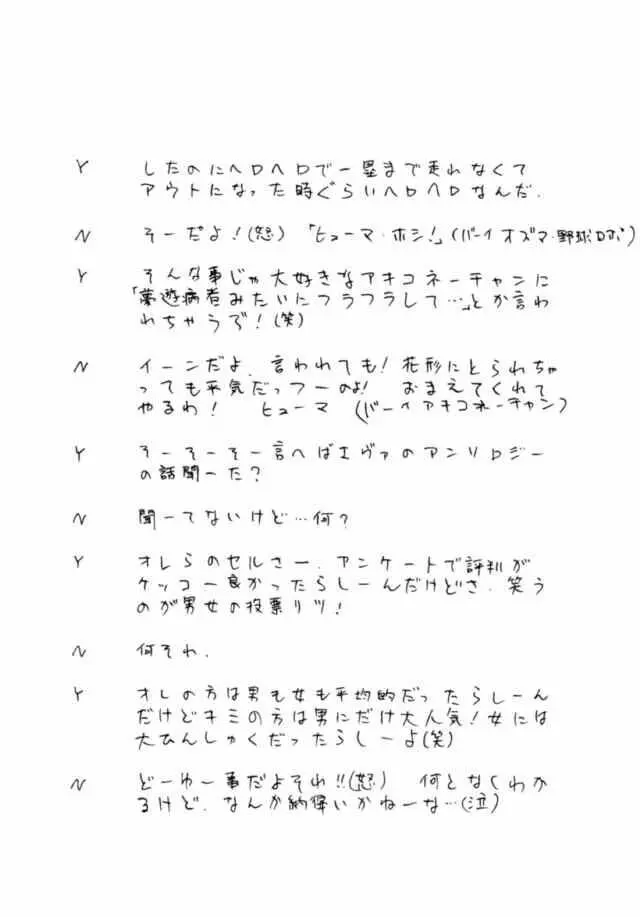 Y したのにヘロヘロで一塁まで走れなくて
アウトになった時ぐらいヘロヘロなんだ.
N そーだよ!(怒) 「ヒューマ・ホシ!」(バーイ オズマ・野球ロボ)
Y そんな事じゃ大好きなアキコネーチャンに
「夢遊病者みたいにフラフラして…」とか言わ
れちゃうぞ!(笑)
N イーンだよ. 言われても! 花形にとられちゃ
っても平気だっつーのよ! おまえてくれて
やるわ! ヒューマ (バーイアキコネーチャン)
Y そーそーそー言へばエヴァのアンソロジー
の話聞ーた?
N 聞ーてないけど…何?
Y オレらのセルさー. アンケートで評判が
ケッコー良かったらしーんだけどさ. 笑う
のが男女の投票リツ!
N 何それ.
Y オレの方は男も女も平均的だったらしーん
だけどキミの方は男にだけ大人気! 女には
大ひんしゅくだったらしーよ(笑)
N どーゆー事だよそれ!!(怒) 何となくわか
るけど. なんか納得いかねーな…(泣)